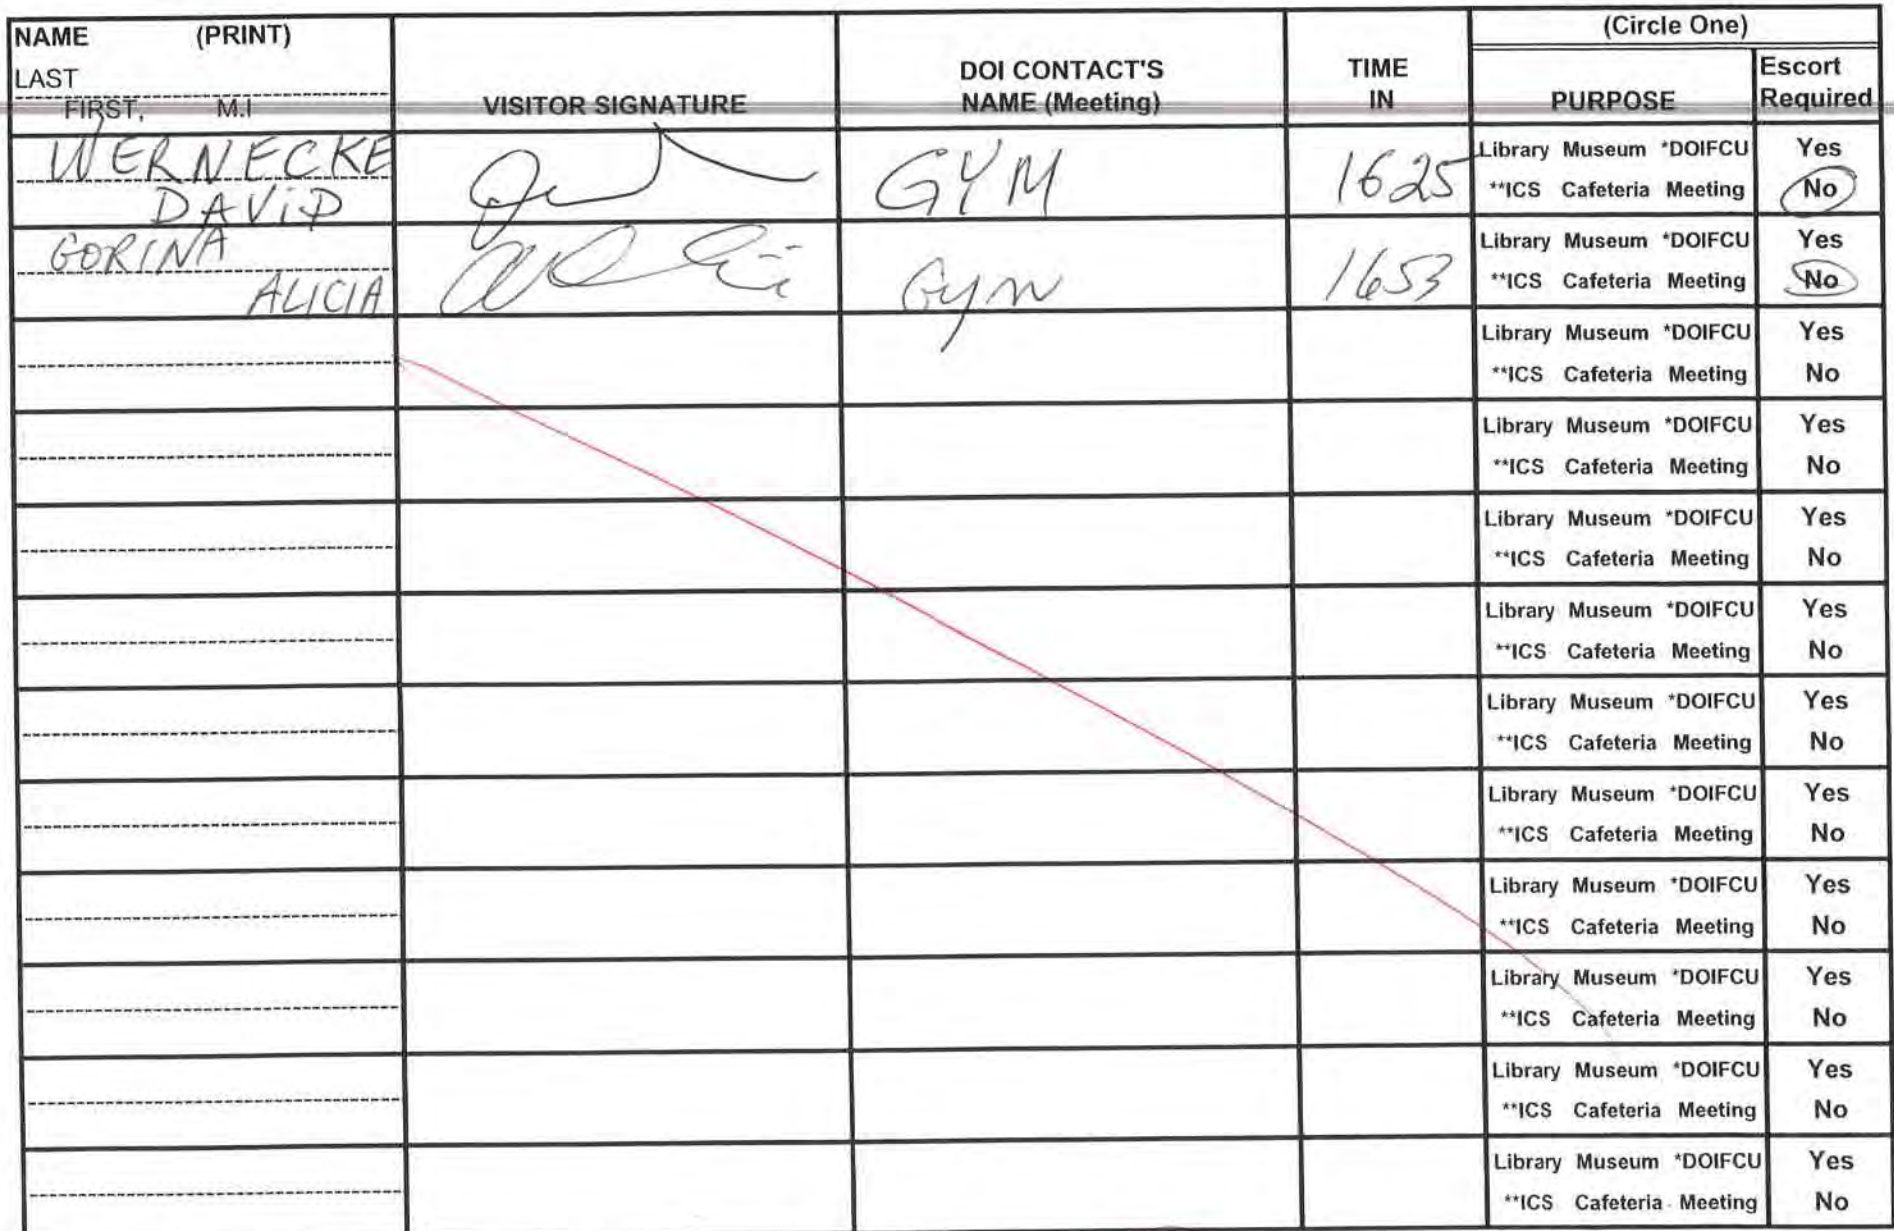 NAME (PRINT)
LAST
FIRST, M.I
VISITOR SIGNATURE
DOI CONTACT'S
NAME (Meeting)
TIME
IN
(Circle One)
PURPOSE
Escort
Required
WERNECKE
DAVID
GYM
1625
Library Museum *DOIFCU
**ICS Cafeteria Meeting
Yes
No
GORINA
ALICIA
Gym
1653
Library Museum *DOIFCU
**ICS Cafeteria Meeting
Yes
No
Library Museum *DOIFCU
**ICS Cafeteria Meeting
Yes
No
Library Museum *DOIFCU
**ICS Cafeteria Meeting
Yes
No
Library Museum *DOIFCU
**ICS Cafeteria Meeting
Yes
No
Library Museum *DOIFCU
**ICS Cafeteria Meeting
Yes
No
Library Museum *DOIFCU
**ICS Cafeteria Meeting
Yes
No
Library Museum *DOIFCU
**ICS Cafeteria Meeting
Yes
No
Library Museum *DOIFCU
**ICS Cafeteria Meeting
Yes
No
Library Museum *DOIFCU
**ICS Cafeteria Meeting
Yes
No
Library Museum *DOIFCU
**ICS Cafeteria Meeting
Yes
No
Library Museum *DOIFCU
**ICS Cafeteria Meeting
Yes
No